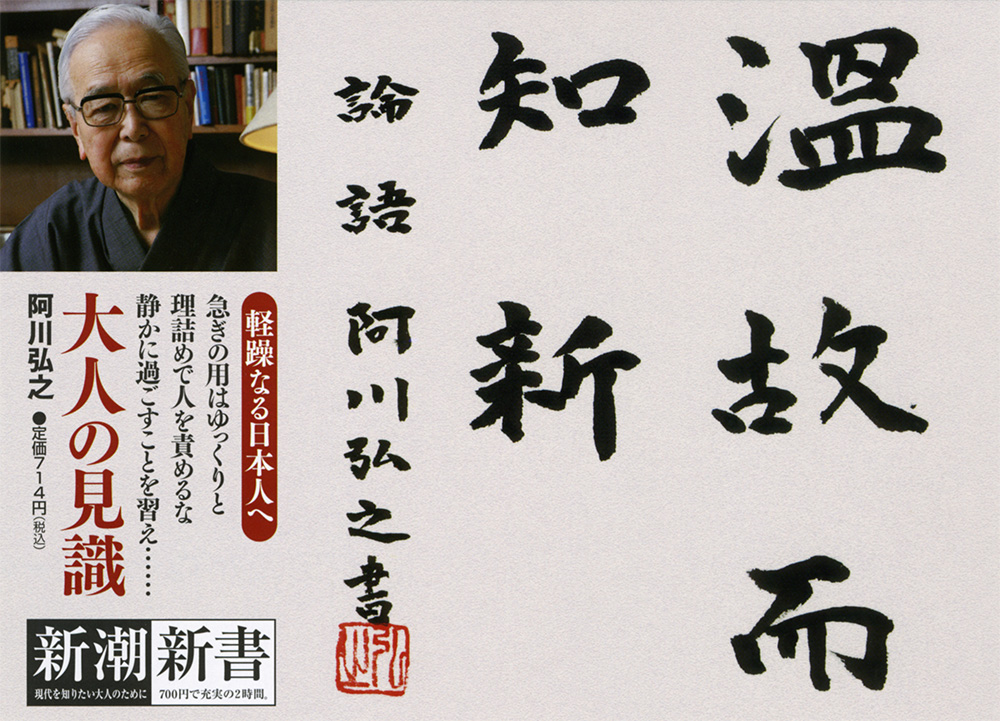 温故而
知新
論語 阿川弘之書
軽躁なる日本人へ
急ぎの用はゆっくりと
理詰めで人を責めるな
静かに過ごすことを習え……
大人の見識
阿川弘之 ●定価714円(税込)
新潮新書
現代を知りたい大人のために 700円で充実の2時間。